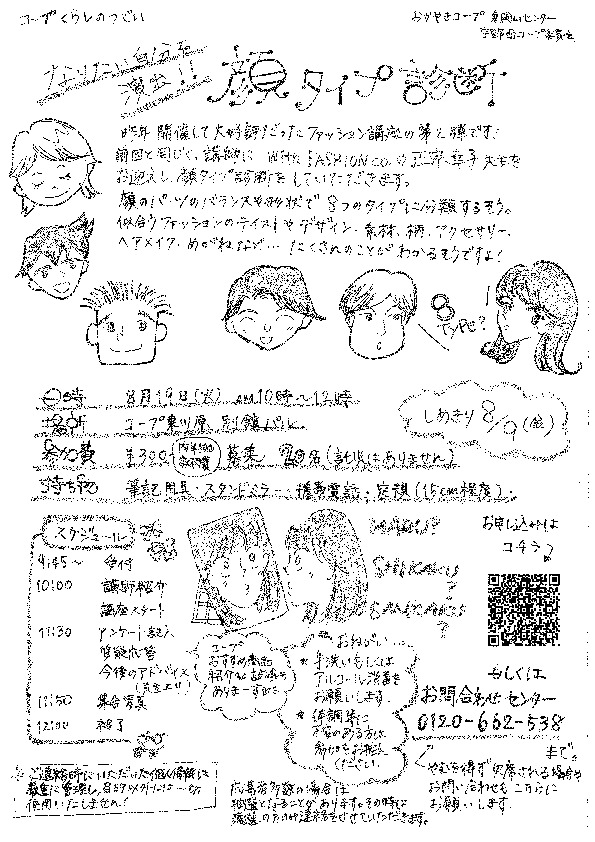 コープくらしのつどい
おかやまコープ 東岡山センター
なりたい自分を
演出!!
顔タイプ診断
昨年開催して大好評だったファッション講座の第2弾です!
前回と同じく、講師に With FASHION co. の 幸子先生を
お迎えし、顔タイプ診断をしていただきます。
顔のパーツのバランスや形状で 8つのタイプに分類するそう。
似合うファッションのテイストやデザイン、素材、柄、アクセサリー、
ヘアメイク、めがねなど… たくさんのことがわかるそうですよ!
8 TYPE?
日時 8月19日 AM10時〜12時
場所 コープ東川原 別館
参加費 ¥300 募集 20名(託児はありません)
持ち物 筆記用具・スタンドミラー・携帯電話・定規(15cm程度)
しめきり 8/9(金)
スケジュール
9:45〜 受付
10:00 講師紹介
講座スタート
11:30 アンケート記入
質疑応答
今後のアドバイス
11:50 集合写真
12:00 終了
MARU?
SHIKAKU?
SANKAKU?
お申し込みは
コチラ♪
コープ
おすすめ商品
紹介
ありまーす
おねがい…
*手洗いもしくは
アルコール消毒を
お願いします。
*体調等に
不安のある方は
ご相談
ください。
もしくは
お問合わせセンター
0120-662-538
まで。
やむを得ず欠席される場合や
お問い合わせもこちらに
お願いします。
ご連絡時にいただいた個人情報は
厳重に管理し、
使用いたしません!
応募者多数の場合は
抽選となることがあります。その時は
当選の方のみ連絡をさせていただきます。